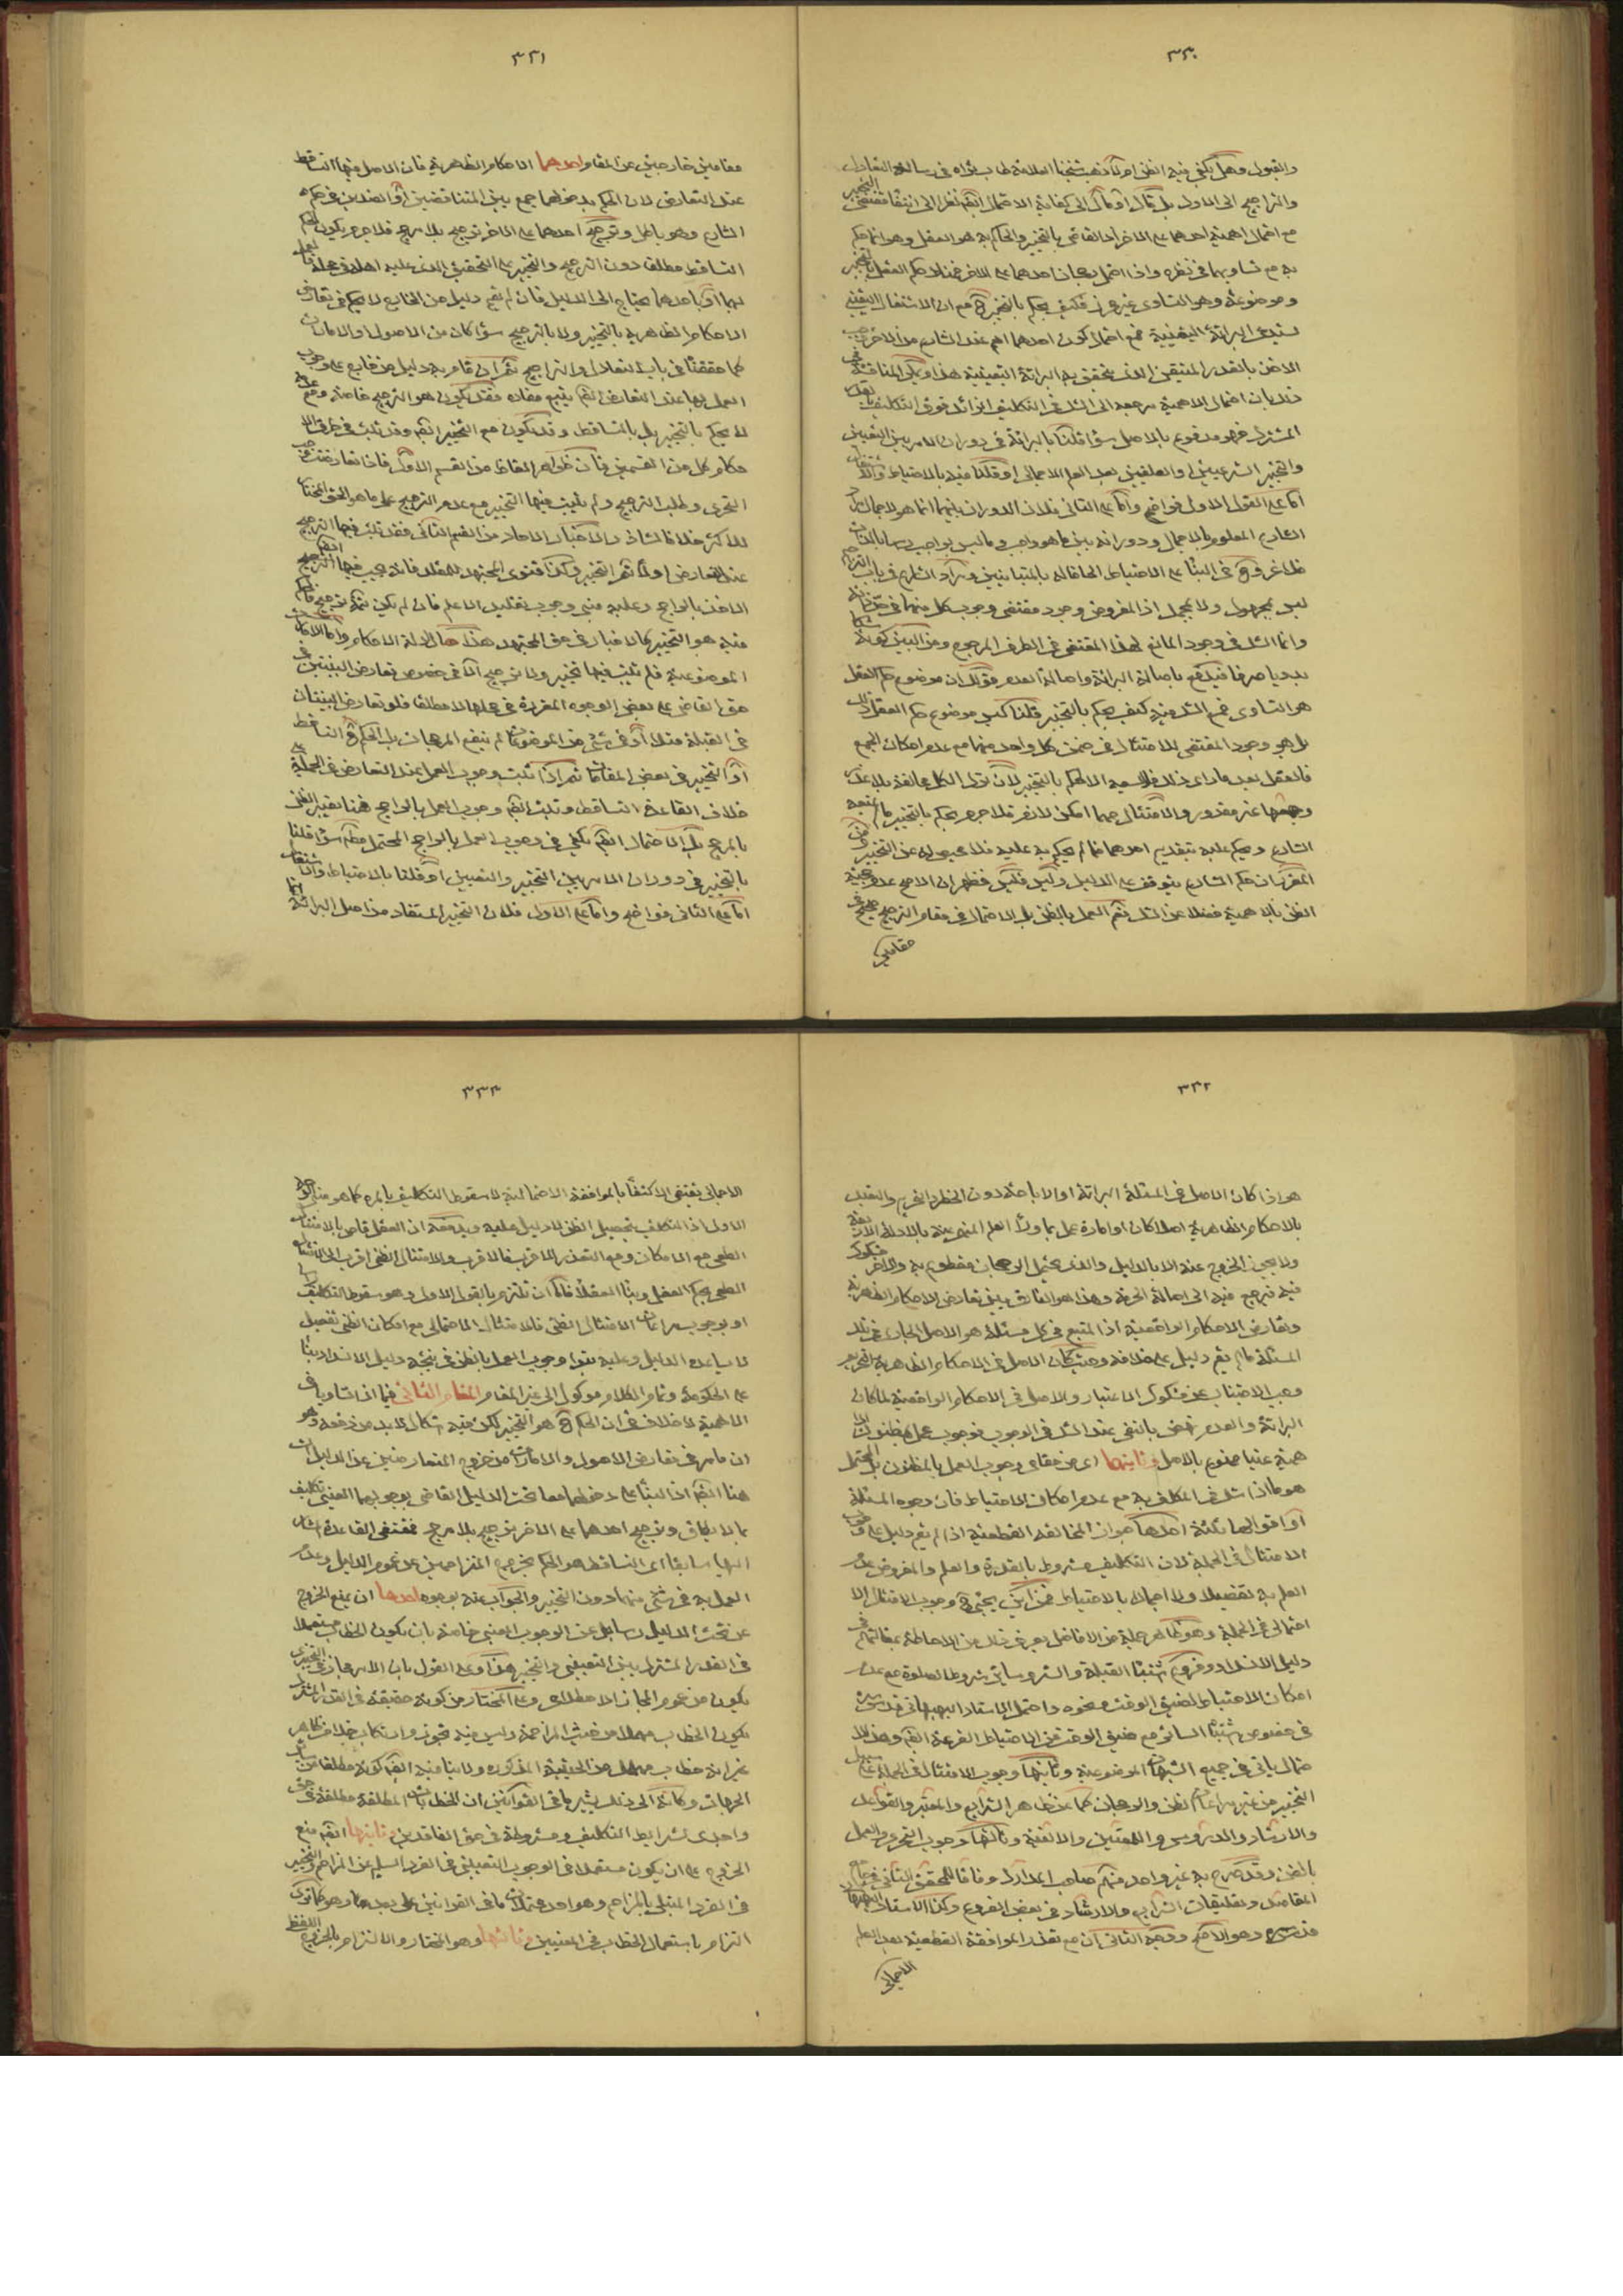 ٣٣٠
والقبول وهل يكفي فيه الظن ام لا ذهب شيخنا العلامة طاب ثراه في رسالة التعادل
والتراجيح الى الاول بل مال الى كفاية الاحتمال ايضا نظرا الى انتفاء مقتضى التخيير
مع احتمال اهمية احدهما على الاخر اذ القاضي بالتخيير والحاكم به هو العقل وهو انما حكم
به مع تساويهما في نظره واذا احتمل رجحان احدهما على الاخر فلا حكم للعقل بالتخيير
وموضوعه وهو التساوي غير محرز فكيف يحكم بالتخيير ح مع ان الاشتغال اليقيني
يستدعي البرائة اليقينية فمع احتمال كون احدهما اهم عند الشارع من الاخر يجب
الاخذ بالقدر المتيقن الذي يتحقق به البرائة اليقينية هذا ويمكن المناقشة في
ذلك بان احتمال الاهمية مرجعه الى الشك في التكليف الزائد فوق التكليف
المشترك فهو مدفوع بالاصل سواء قلنا بالبرائة في دوران الامر بين التعيين
والتخيير الشرعيين والعقليين بعد العلم الاجمالي او قلنا فيه بالاحتياط والاشتغال
اما على القول الاول فواضح واما على الثاني فلان الدوران بينهما انما هو لاجمال
الشارع المعلوم بالاجمال ودورانه بين ما هو واجب وما ليس بواجب
ليس بمجهول ولا مجمل اذ المفروض وجود مقتضى وجوب كل منهما في حد ذاته
وانما الشك في وجود المانع لهذا المقتضي في الطرف المرجوح ومن البين كونه
بدويا صرفا فيدفع باصالة البرائة واصالة العدم فان موضوع حكم العقل
هو التساوي فمع الشك فيه كيف يحكم بالتخيير قلنا ليس موضوع حكم العقل ذلك
بل هو وجود المقتضي للامتثال في ضمن كل واحد منهما مع عدم امكان الجمع
فالعقل بعد ما راى ذلك فلا يسعه الا الحكم بالتخيير لان ترك الكل مخالفة بلا عذر
وجمعهما غير مقدور والامتثال مهما امكن لازم فلا جرم يحكم بالتخيير ما لم يمنعه
الشارع ويحكم عليه بتقديم احدهما فما لم يحكم به عليه فلا محيص له عن التخيير
حكم الشارع يتوقف على الدليل وليس فليس فظهر ان الاصح عدم حجية
الظن بالاهمية فضلا عن الشك نعم العمل بالظن بل الاحتمال في مقام الترجيح صحيح في
مقامين
٣٣١
مقامين خارجين عن المقام احدهما الاحكام الظاهرية فان الاصل فيها التساقط
عند التعارض لان الحكم بدخولهما جمع بين المتناقضين او الضدين في حكم
الشارع وهو باطل وترجيح احدهما على الاخر ترجيح بلا مرجح فلا جرم يكون الحكم
التساقط مطلقا دون الترجيح والتخيير على التحقيق الذي عليه اهله في محله فالعمل
بهما او باحدهما يحتاج الى الدليل فان لم يقم دليل من الخارج لا يحكم في تعارض
الاحكام الظاهرية بالتخيير ولا بالترجيح سواء كان من الاصول او الامارات
كما حققناه في باب التعادل والتراجيح نعم ان قام به دليل من خارج على وجوب
العمل بها عند التعارض ايضا يتبع مفاده فقد يكون هو الترجيح خاصة ومع عدمه
لا يحكم بالتخيير بل بالتساقط وقد يكون مع التخيير ايضا وقد ثبت في طرق الا
حكام كل من القسمين فان ظواهر الالفاظ من القسم الاول فاذا تعارضت يجب
التحري وطلب الترجيح ولم يثبت فيها التخيير مع عدم الترجيح على ما هو الحق المختار
للاكثر خلافا لشاذ والاخبار الاحاد من القسم الثاني فقد ثبت فيها الترجيح
عند التعارض اولا ثم التخيير وكذا فتوى المجتهد للمقلد فانه يجب فيها الترجيح ايضا
الاخذ بالراجح وعليه مبنى وجوب تقليد الاعلم فان لم يكن ثمة ترجيح فالحكم
فيه هو التخيير كالاخبار في حق المجتهد هذا حال ادلة الاحكام واما الامارات
الموضوعية فلم يثبت فيها تخيير ولا ترجيح الا في خصوص تعارض البينتين في
حق القاضي على بعض الوجوه المقررة في محلها لا مطلقا فلو تعارض البينتان
في القبلة مثلا او في شيء من الموضوعات لم ينفع الرجحان بل الحكم ح التساقط
او التخيير في بعض المقامات ثم اذا ثبت وجوب العمل عند التعارض في الجملة على
خلاف القاعدة التساقط وثبت ايضا وجوب العمل بالراجح فهنا يعتبر الظن
بالمرجح بل الاحتمال ايضا يكفي في وجوب العمل بالراجح المحتمل مطلقا سواء قلنا
بالتخيير في دوران الامر بين التخيير والتعيين او قلنا بالاحتياط والاشتغال
اما على الثاني فواضح واما على الاول فلان التخيير المستفاد من اصل البرائة انما
٣٣٢
هو اذا كان الاصل في المسئلة البرائة او الاباحة دون الحظر والتحريم والتعبد
بالاحكام الظاهرية اصلا كان او امارة عمل بما وراء العلم المنهي عنه بالادلة الاربعة
ولا يجوز الخروج عنه الا بالدليل والذي يحتمل الرجحان مقطوع به والاخر مشكوك
فيه فيرجع فيه الى اصالة الحرمة وهذا هو الفارق بين تعارض الاحكام الظاهرية
وتعارض الاحكام الواقعية اذ المتبع في كل مسئلة هو الاصل الجاري في تلك
المسئلة ما لم يقم دليل على خلافه وحيث كان الاصل في الاحكام الظاهرية التحريم
وجب الاجتناب عن مشكوك الاعتبار والاصل في الاحكام الواقعية لما كان
البرائة والعدم فيفتي بالنفي عند الشك في الوجوب فوجوب عمل بمظنون الا
همية عينا مدفوع بالاصل وثانيهما اي من مقامي وجوب العمل بالمظنون بل المحتمل
هو ما اذا شك في المكلف به مع عدم امكان الاحتياط فان وجوه المسئلة
او اقوالها ثلثة احدها جواز المخالفة القطعية اذا لم يقم دليل على وجوب
الامتثال في الجملة لان التكليف مشروط بالقدرة والعلم والمفروض عدم
العلم به تفصيلا ولا اجمالا بالاحتياط فمن اين يجيء ح وجوب الامتثال الا
حتمالي في الجملة وهو ظاهر جملة من الافاضل يعرف ذلك من الاحاطة بمقالتهم في
دليل الانسداد وفروع شبهات القبلة والستر وسائر شروط الصلوة مع عدم
امكان الاحتياط لضيق الوقت ونحوه واحتمل الاستاد البهبهاني قدس سره
في خصوص شبهات السائر مع ضيق الوقت عن الاحتياط القرعة ايضا وهذا الا
حتمال ياتي في جميع الشبهات الموضوعية وثانيها وجوب الامتثال في الجملة على سبيل
التخيير من غير مراعات الظن والرجحان كما عن ظاهر الشرايع والمعتبر والقواعد
والارشاد والدروس واللمعتين والالفية وثالثها وجوب التحري والعمل
بالظن وقد صرح به غير واحد منهم صاحب المدارك وفاقا للمحقق الثاني في جامع
المقاصد وتعليقات الشرايع والارشاد في بعض الفروع وكذا الاستاد البهبهاني
قدس سره وهو الاصح ووجه الثاني ان مع تعذر الموافقة القطعية بعد العلم
الاجمالي
٣٣٣
الاجمالي يقتضي الاكتفاء بالموافقة الاحتمالية لا سقوط التكليف بالمرة كما هو مبنى الوجه
الاول اذ المكلف بتحصيل الظن لا دليل عليه ويدفعه ان العقل قاض بالامتثال
العلمي مع الامكان ومع التعذر فالاقرب فالاقرب والامتثال الظني اقرب الى الامتثال
العلمي بحكم العقل وبناء العقلاء فاما ان تلتزم بالقول الاول وهو سقوط التكليف راسا
او بوجوب مراعات الامتثال الظني فالامتثال الاحتمالي مع امكان الظني تفصيل
لا يساعده الدليل وعليه بنوا وجوب العمل بالظن في نتيجة دليل الانسداد بناء
على الحكومة وتمام الكلام موكول الى غير المقام المقام الثاني فيما اذا تساويا في
الاهمية لا خلاف في ان الحكم ح هو التخيير لكن فيه اشكال لا بد من دفعه وهو
ان ما مر في تعارض الاصول والامارات من خروج المتعارضين عن الدليل ات
هنا ايضا اذ البناء على دخولهما معا تحت الدليل القاضي بوجوبهما العيني تكليف
بما لا يطاق وترجيح احدهما على الاخر ترجيح بلا مرجح فمقتضى القاعدة المشار
اليها سابقا اي التساقط هو الحكم بخروج المتزاحمين عن عموم الدليل وعدم
العمل به في شيء منهما دون التخيير والجواب عنه بوجوه احدها ان يمنع الخروج
عن تحت الدليل راسا بل عن الوجوب العيني خاصة بان يكون الخطاب مستعملا
في القدر المشترك بين التعييني والتخييري هذا وعلى القول بان الامر مجاز في التخييري
يكون من عموم المجاز لا مطلقا وعلى المختار من كونه حقيقة في القدر المشترك
يكون الخطاب مهملا من حيث المزاحمة وليس فيه تجوز وارتكاب خلاف ظاهر
غير انه خطاب مهمل من الحيثية المذكورة ولا ينافيه ايضا كونه مطلقا من سائر
الجهات وكانه الى ذلك يشير ما في القوانين ان الخطابات المطلقة مطلقة في حق
واجدي شرايط التكليف ومشروطة في حق الفاقدين وثانيها ايضا منع
الخروج على ان يكون مستعملا في الوجوب التعييني في الفرد السليم عن المزاحم والتخيير
في الفرد المبتلى بالمزاحم وهو احد محتملات ما في القوانين على بعد وهو كما ترى
التزام باستعمال الخطاب في المعنيين وثالثها وهو المختار والالتزام بالخروج اللفظ